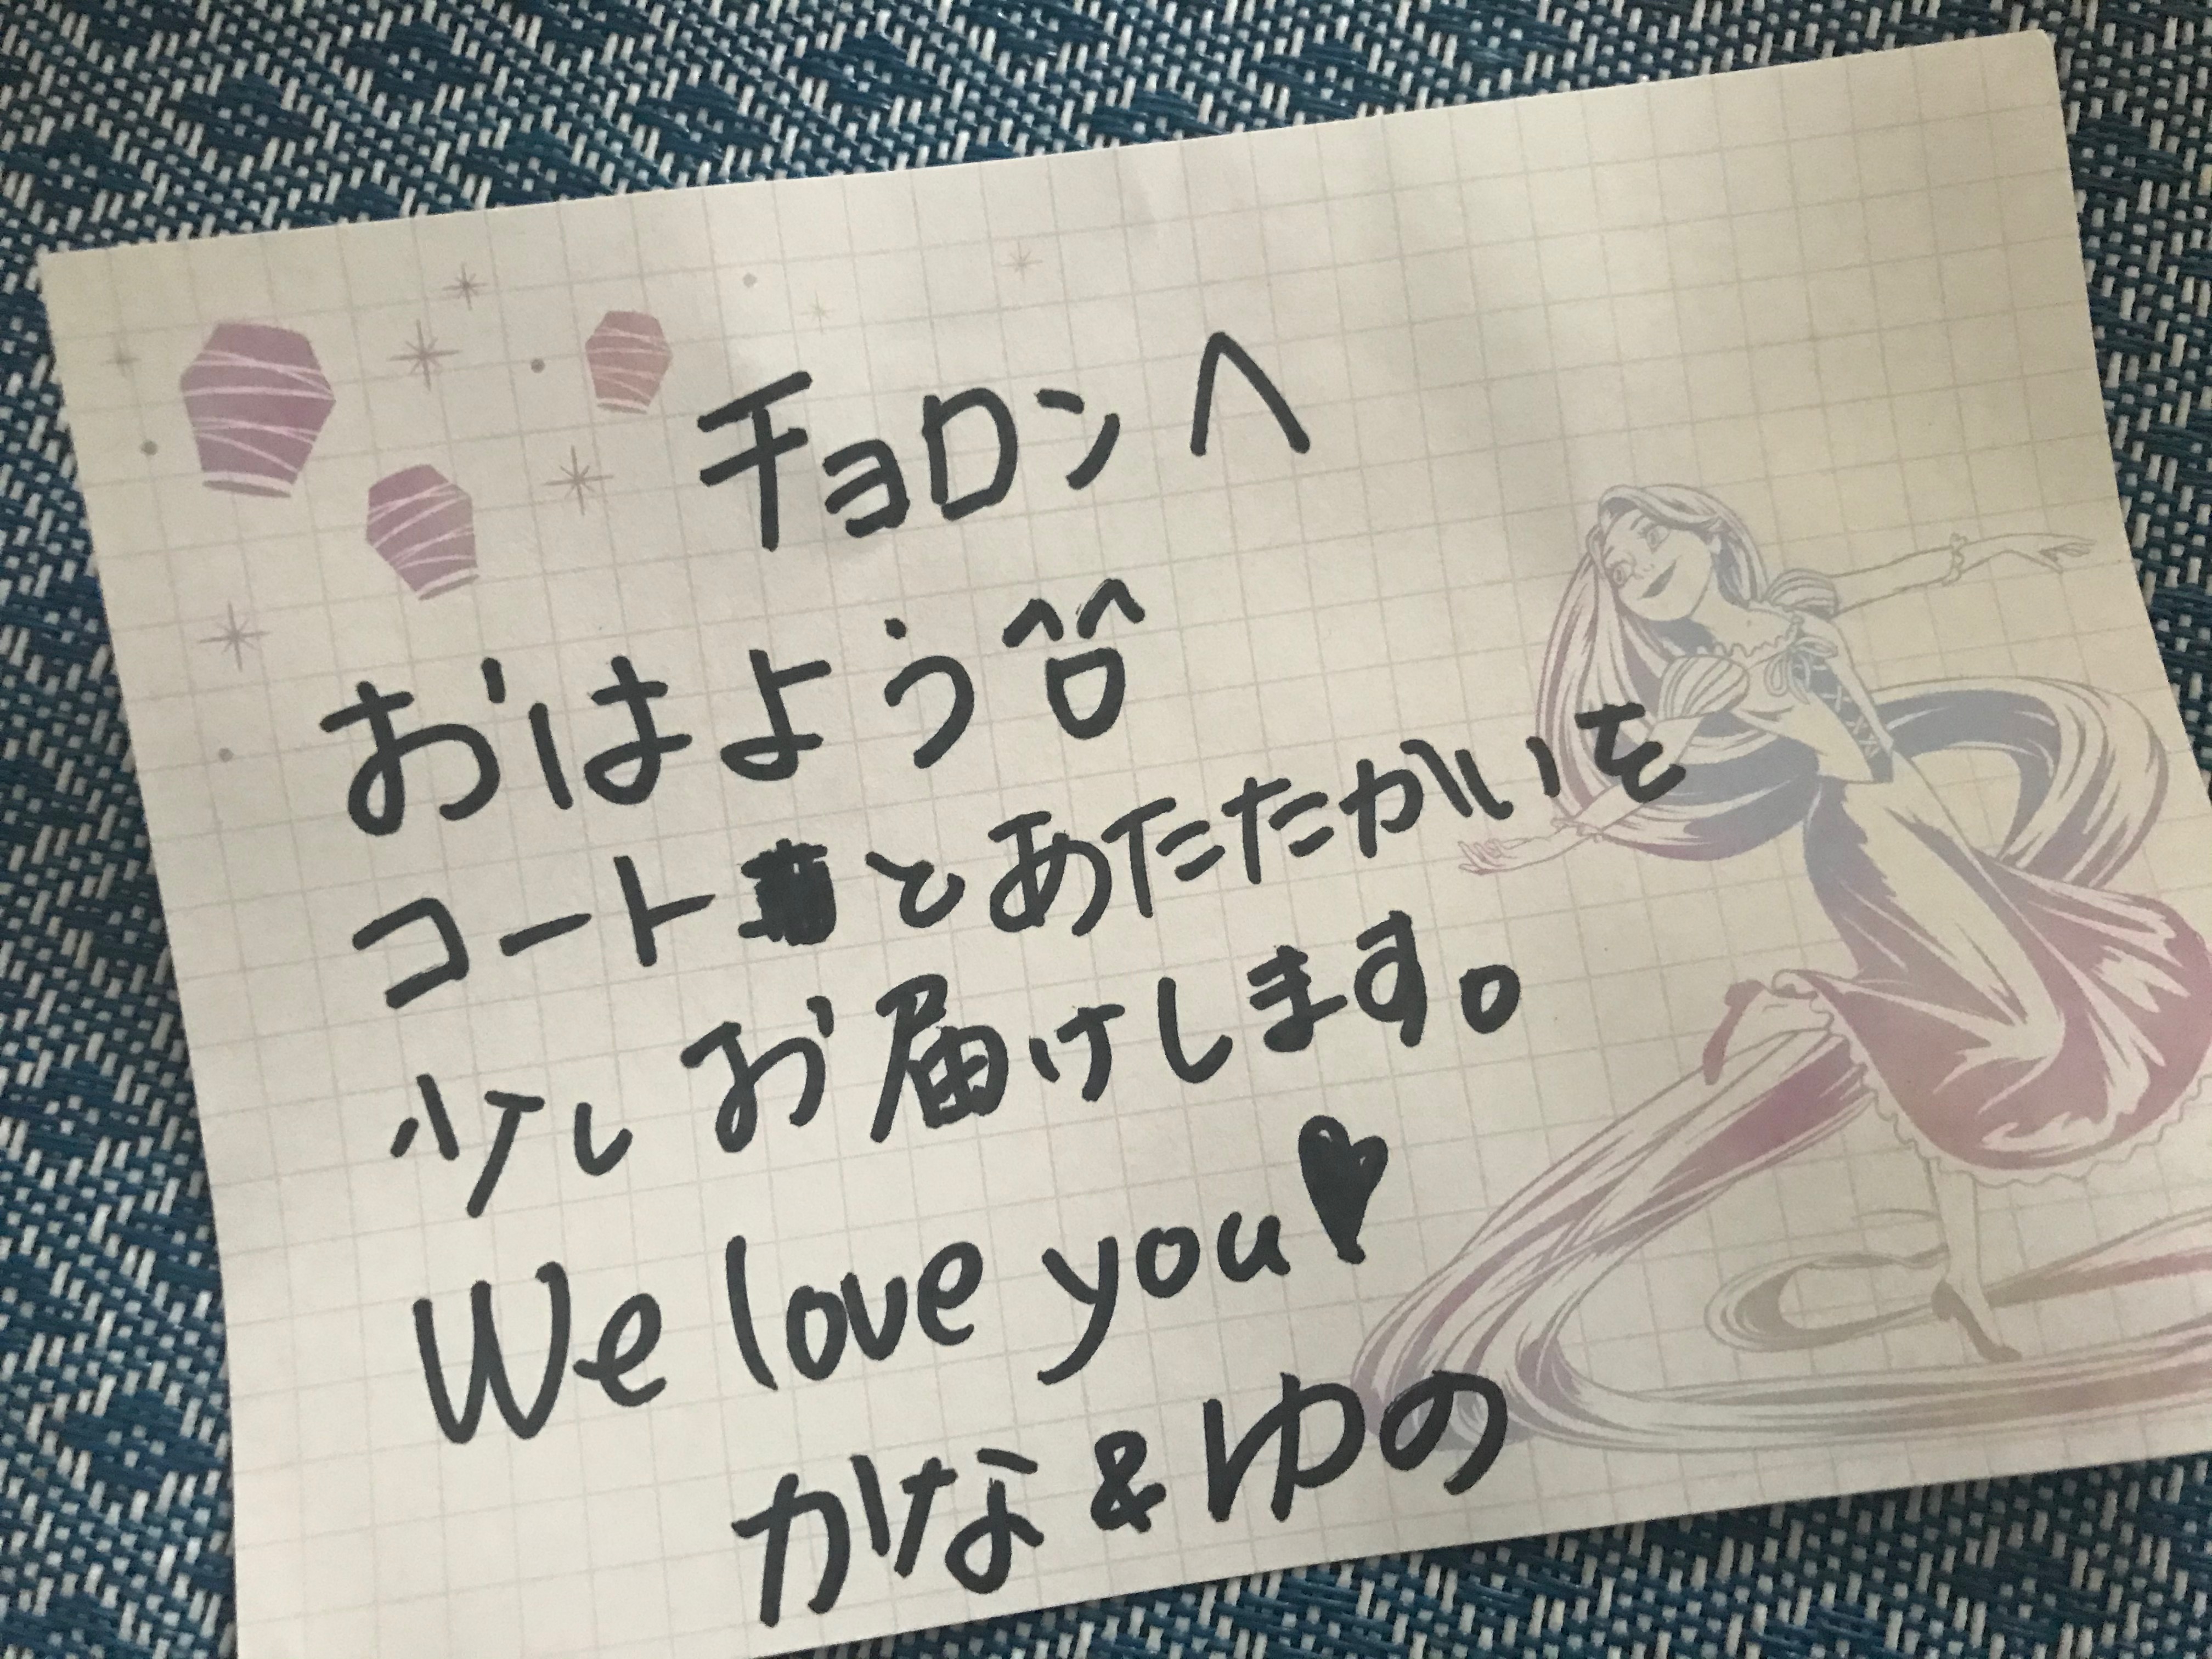 チョロンへ
おはよう
コートとあたたかいを
少しお届けします。
We love you♥
かな&ゆの